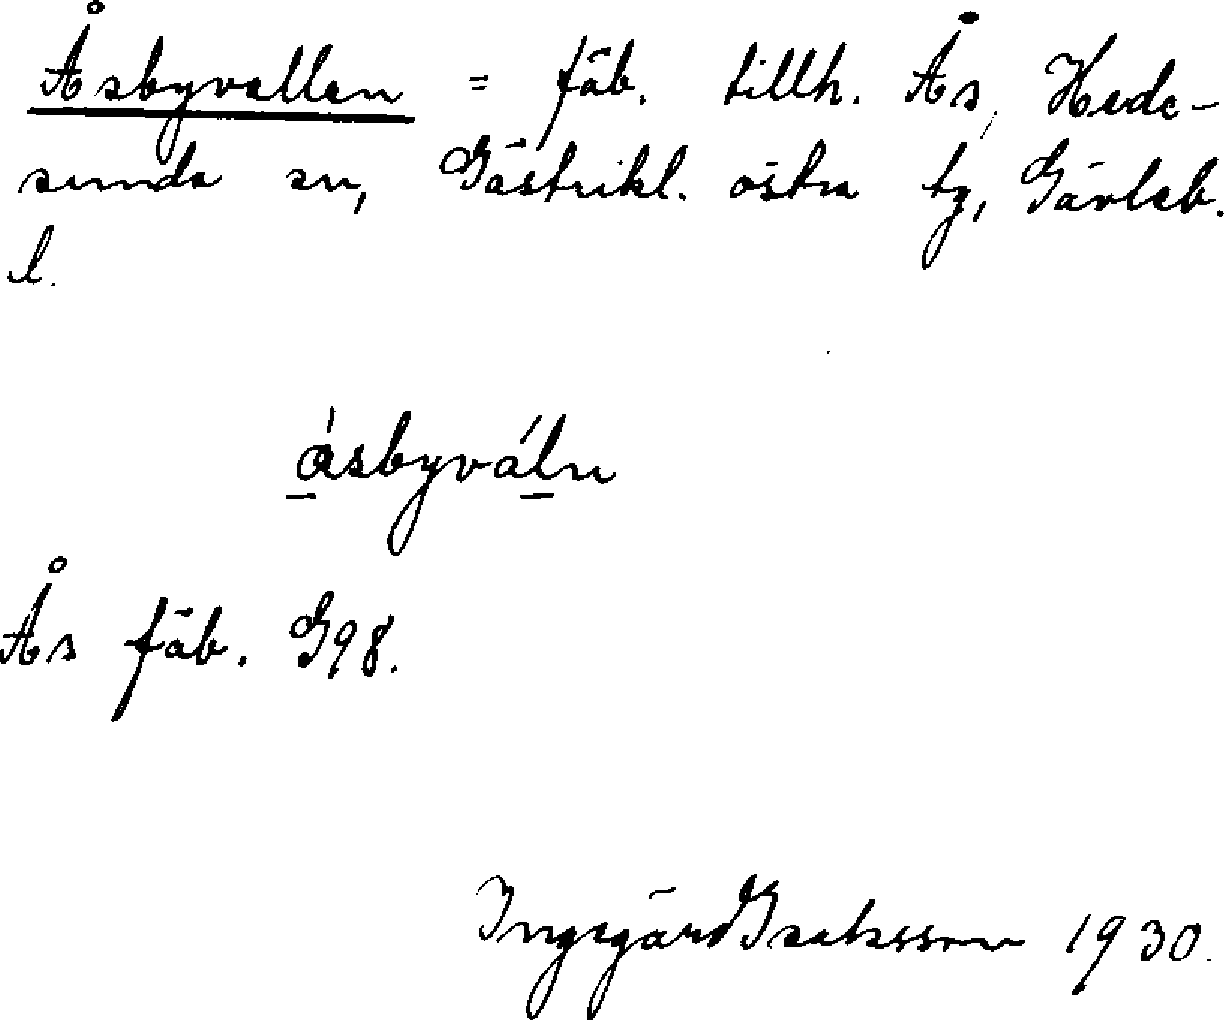 Åsbyvallen = fäb. tillh. Ås, Hede-
sunda sn, Gästrikl. östra tg, Gävleb.
l.
åsbyváln
Ås fäb. G98.
Ingegärd Isaksson 1930.